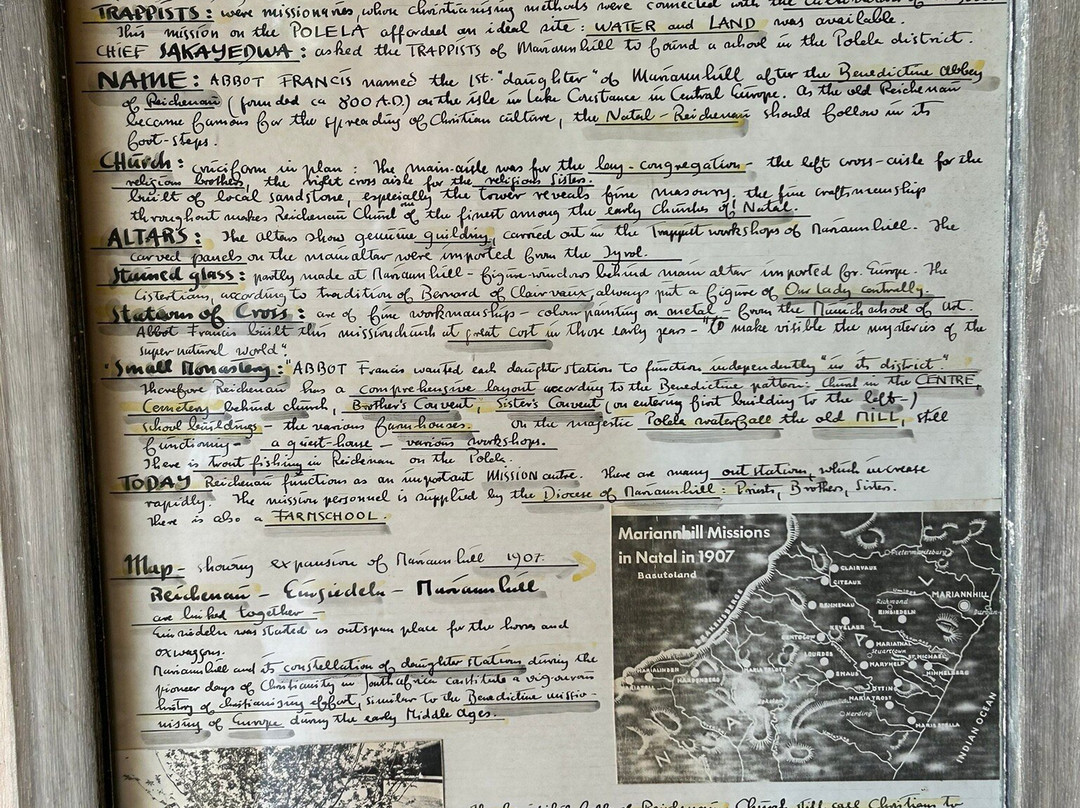 TRAPPISTS: were missionaries, whose christianising methods were connected with the cultivation of
This mission on the POLELA afforded an ideal site: WATER and LAND was available.
CHIEF SAKAYEDWA: asked the TRAPPISTS of Mariannhill to found a school in the Polela district.
NAME: ABBOT FRANCIS named the 1st. "daughter" of Mariannhill after the Benedictine Abbey
of Reichenau (founded ca 800 A.D.) on the isle in Lake Constance in Central Europe. As the old Reichenau
became famous for the spreading of Christian culture, the Natal-Reichenau should follow in its
foot-steps.
Church: cruciform in plan: The main-aisle was for the lay-congregation - the left cross-aisle for the
religious brothers, the right cross aisle for the religious Sisters.
built of local sandstone, especially the tower reveals fine masonry. the fine craftsmanship
throughout makes Reichenau Church one of the finest among the early churches of Natal.
ALTARS: The altars show genuine guilding, carried out in the Trappist workshops of Mariannhill. The
carved panels on the main altar were imported from the Tyrol.
Stained glass: partly made at Mariannhill - figure-windows behind main altar imported fr. Europe. The
Cistertians, according to tradition of Bernard of Clairvaux, always put a figure of Our Lady centrally.
Stations of Cross: are of fine workmanship - colour painting on metal - from the Munich school of Art.
Abbot Francis built this mission church at great cost in those early years - "to make visible the mysteries of the
super natural world".
Small Monastery: "ABBOT Francis wanted each daughter station to function independently "in its district".
Therefore Reichenau has a comprehensive layout according to the Benedictine pattern: Church in the CENTRE,
Cemetery behind church, Brother's Convent, Sister's Convent (on entering first building to the left-)
school buildings - the various farm houses. On the majestic Polela waterfall the old MILL, still
functioning - a guest-house - various workshops.
There is trout fishing in Reichenau on the Polela.
TODAY Reichenau functions as an important MISSION centre. There are many out stations, which increase
rapidly. The mission personnel is supplied by the Diocese of Mariannhill: Priests, Brothers, Sisters.
There is also a FARMSCHOOL.
Map - showing expansion of Mariannhill 1907.
Reichenau - Einsiedeln - Mariannhill
are linked together -
Einsiedeln was started as outspan place for the horses and
oxwaggons.
Mariannhill and its constellation of daughter stations during the
pioneer days of Christianity in South Africa constitute a vigorous
history of christianising effort, similar to the Benedictine missio-
nising of Europe during the early Middle Ages.
Mariannhill Missions
in Natal in 1907
Basutoland
Pietermaritzburg
CLAIRVAUX
CITEAUX
MARIANNHILL
REICHENAU
Richmond
EINSIEDELN
Durban
KEVELAER
CENTOCOW
MARIATHAL
Stuartstown
ST. MICHAEL
LOURDES
MARYHELP
HIMMELBERG
MARIALINDEN
MARIA TELGTE
EMAUS
HARDENBERG
OTTING
MARIA TROST
Harding
MARIS STELLA
INDIAN OCEAN
N A
of Reichenau Church still call Christians to